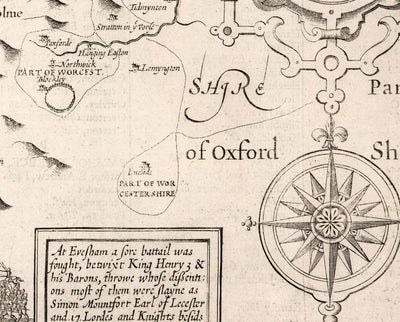 Tidmynten
Stratton in y Vorle
olme
Paxforde
Hanging Easton
Northwick
Lemyngton
PART OF WORCEST.
Blockley
SHIRE
Par
of Oxford
Sh
PART OF WOR
CESTERSHIRE
At Evesham a sore battail was
fought, betwixt King Henry 3 &
his Barons, throwe whose dissenti:
ons most of them were slayne as
Simon Mountfort Earl of Lecester
and 17 Lordes and Knights besids